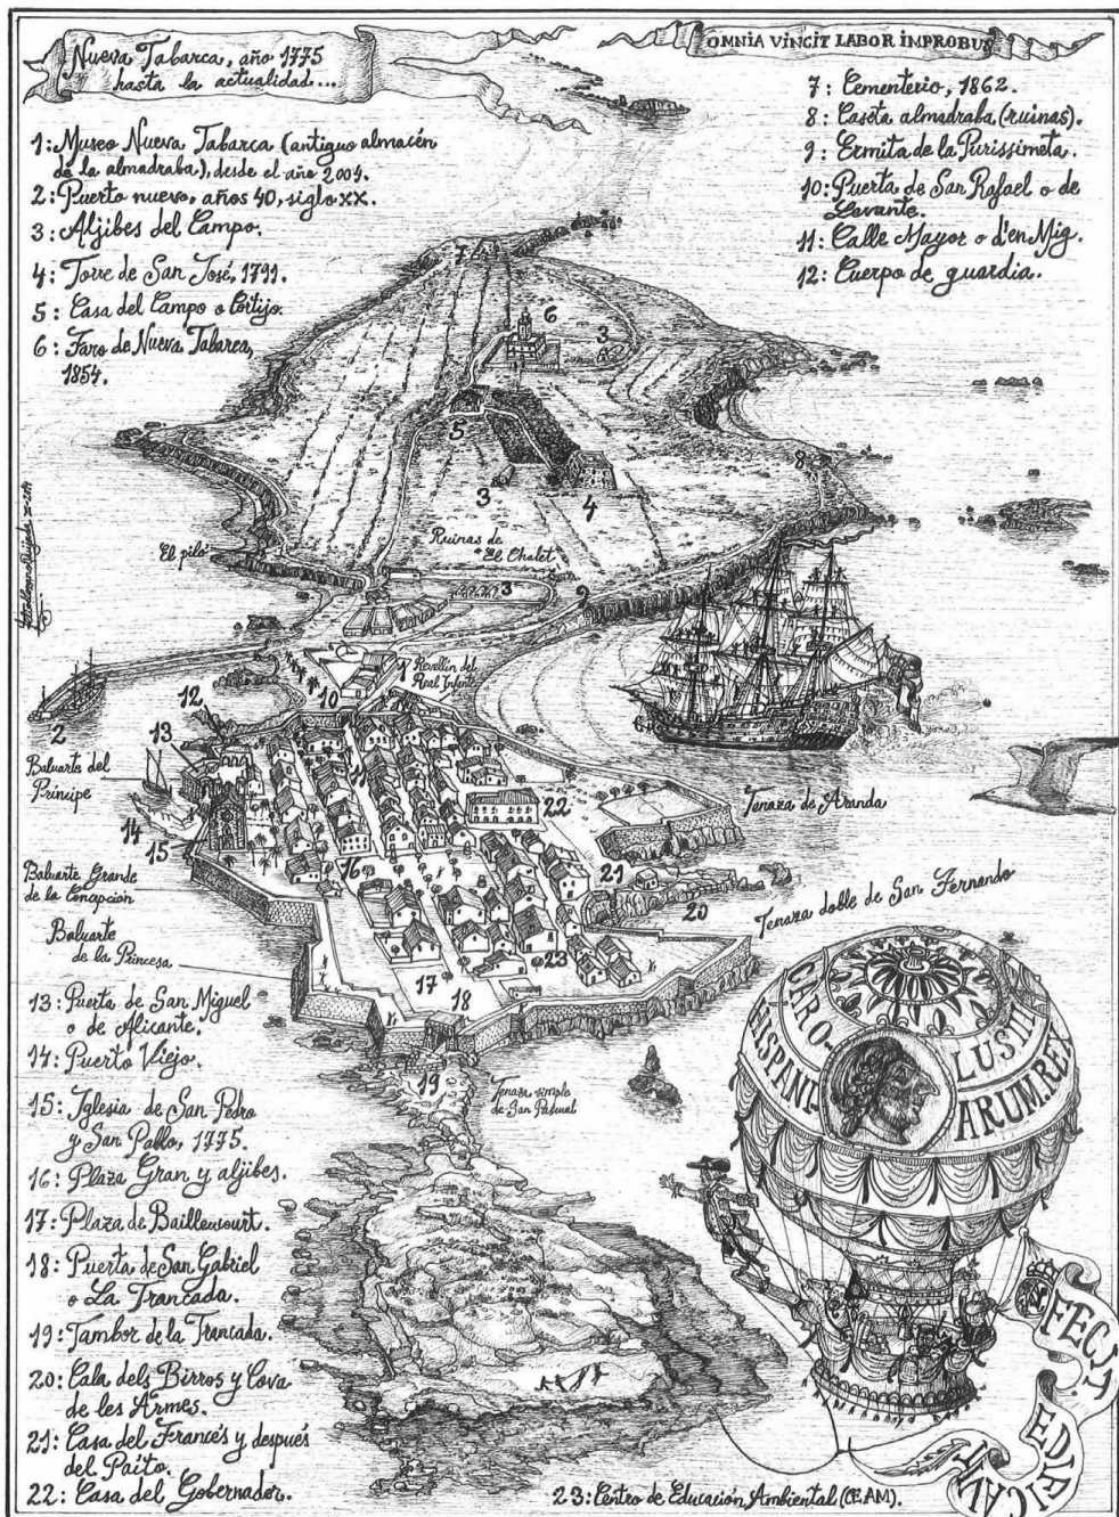 Nueva Tabarca, año 1775
hasta la actualidad...
OMNIA VINCIT LABOR IMPROBUS
1: Museo Nueva Tabarca (antiguo almacén
de la almadraba), desde el año 2004.
2: Puerto nuevo, años 40, siglo XX.
3: Aljibes del Campo.
4: Torre de San José, 1791.
5: Casa del Campo o Cortijo.
6: Faro de Nueva Tabarca,
1854.
7: Cementerio, 1862.
8: Caseta almadraba (ruinas).
9: Ermita de la Purissimeta.
10: Puerta de San Rafael o de
Levante.
11: Calle Mayor o d'en Mig.
12: Cuerpo de guardia.
7
6
3
5
8
3
4
Ruinas de
"El Chalet"
"El pilo"
3
9
1
Revellín del
Real Infante
10
12
2
13
11
Baluarte del
Príncipe
22
Tenaza de Aranda
14
15
16
21
20
Baluarte Grande
de la Concepción
Tenaza doble de San Fernando
Baluarte
de la Princesa
23
17
18
19
Tenaza simple
de San Pascual
13: Puerta de San Miguel
o de Alicante.
14: Puerto Viejo.
15: Iglesia de San Pedro
y San Pablo, 1775.
16: Plaza Gran y aljibes.
17: Plaza de Baillencourt.
18: Puerta de San Gabriel
o La Trancada.
19: Tambor de la Trancada.
20: Cala dels Birros y Cova
de les Armes.
21: Casa del Francés y después
del Paíto.
22: Casa del Gobernador.
23: Centro de Educación Ambiental (CEAM).
CARO-
LUS III
HISPANI-
ARUM.REX
FECIT
EDIFICAVI